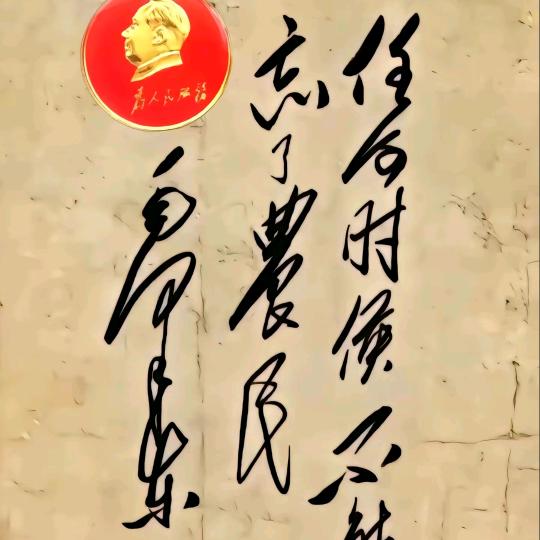 任何时候不能
忘了農民
毛泽东
为人民服务